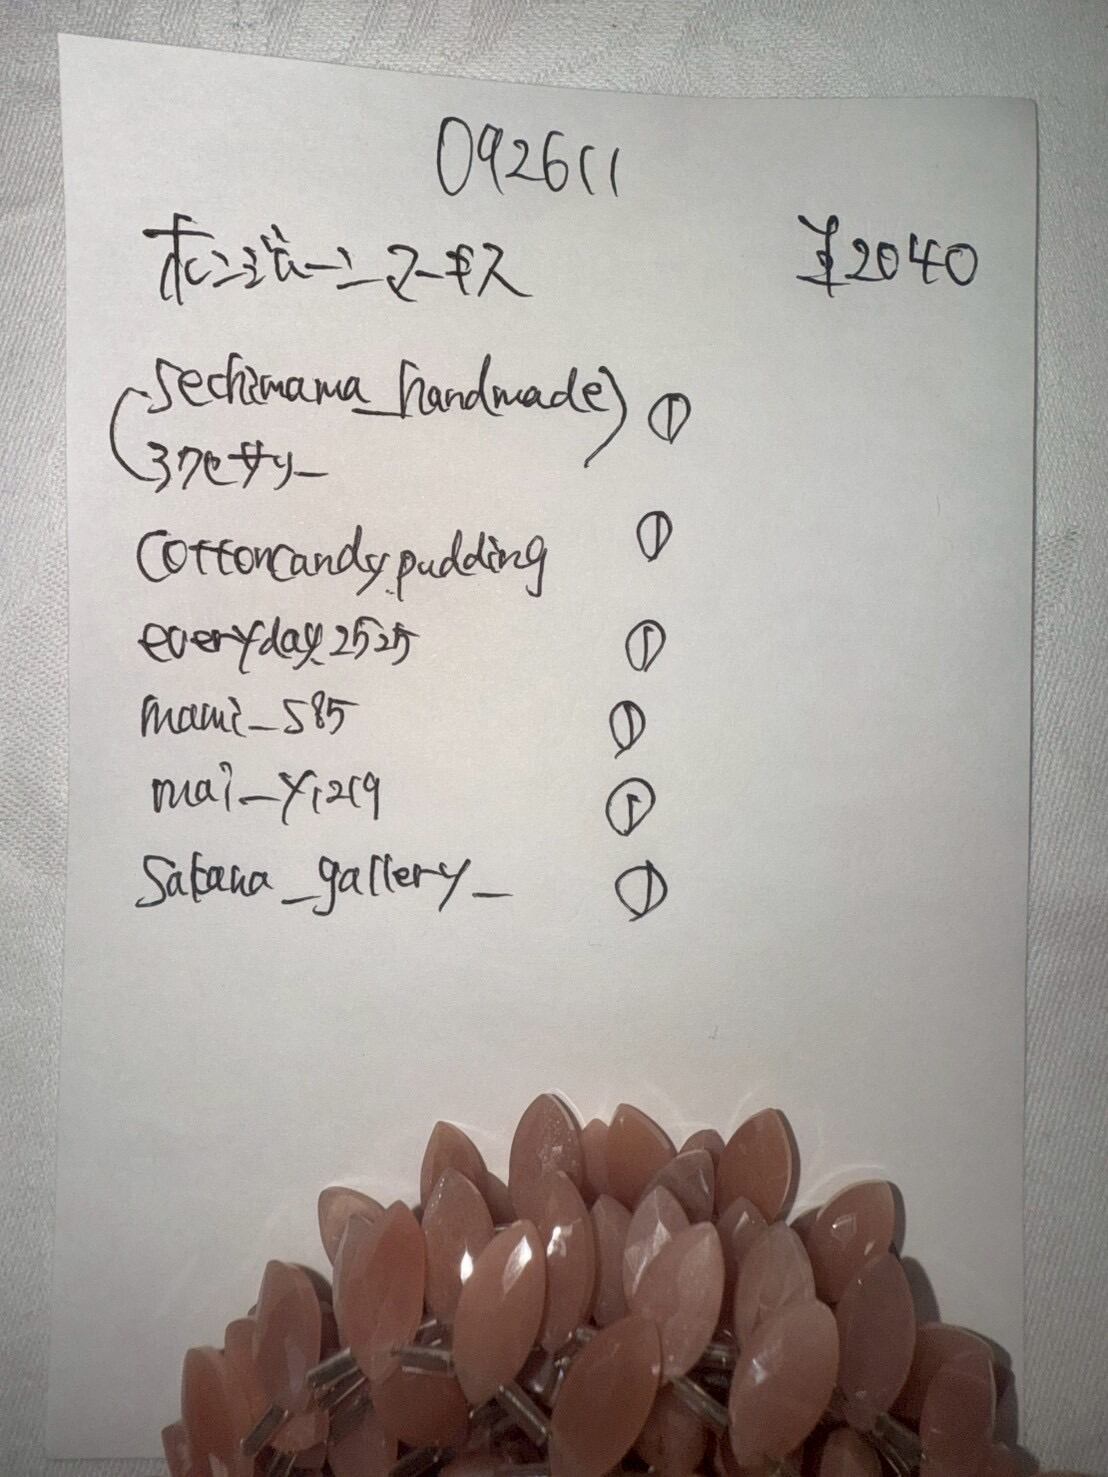 092611
ボンジョーンマーキス ¥2040
(sechimama_handmade) ①
アクセサリー
cottoncandy.pudding ①
everyday.2525 ①
mami_585 ①
mai_y,1219 ①
sakana_gallery_ ①